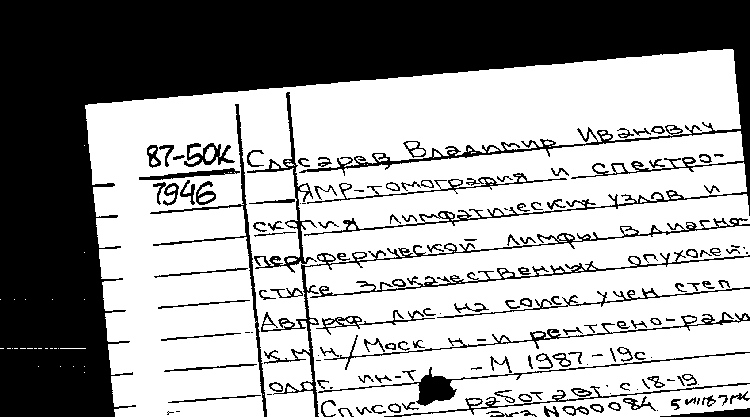 87-50К Слесарев Владимир Иванович
7946 ЯМР-томография и спектро-
скопия лимфатических узлов и
периферической лимфы в диагно-
стике злокачественных опухолей:
Автореф. дис. на соиск. учен степ
к.м.н. / Моск. н.-и рентгено-ради
олог. ин-т - М, 1987 - 19с.
Список работ авт: с. 18-19
N000084